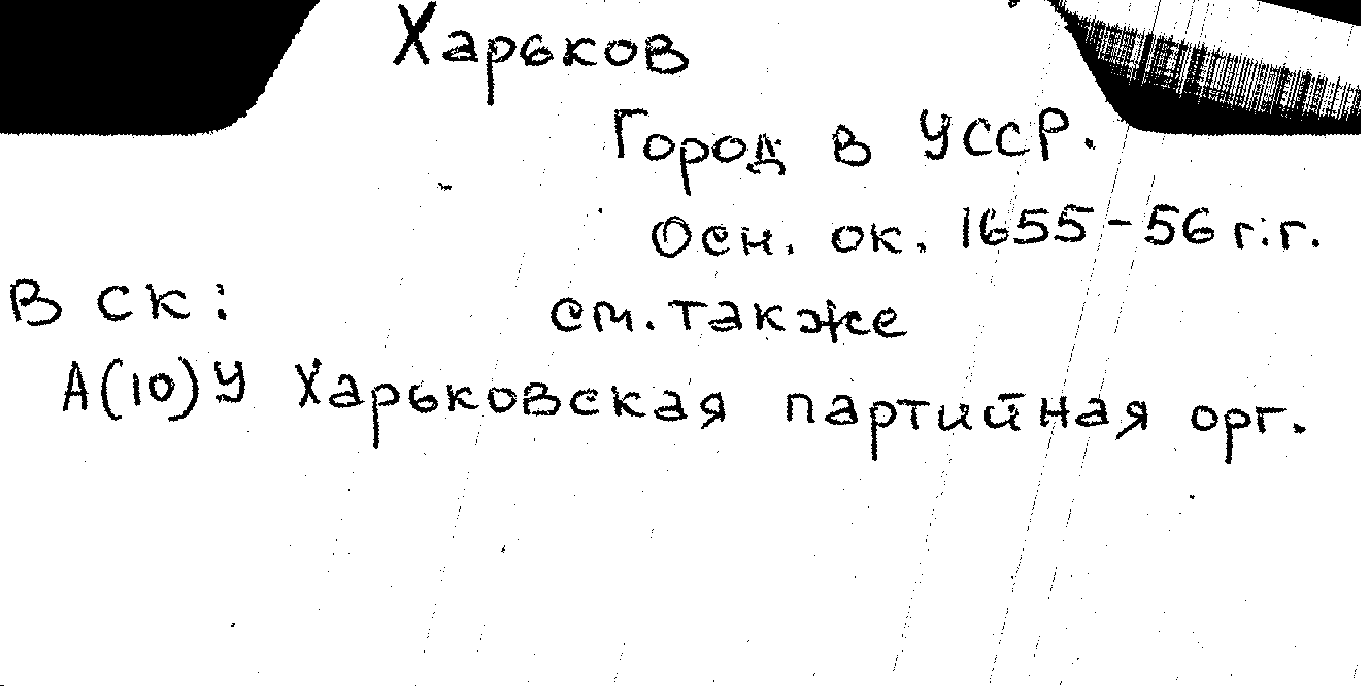 Харьков
Город в УССР.
Осн. ок. 1655-56 г.г.
В СК: см. также
А(10)У Харьковская партийная орг.